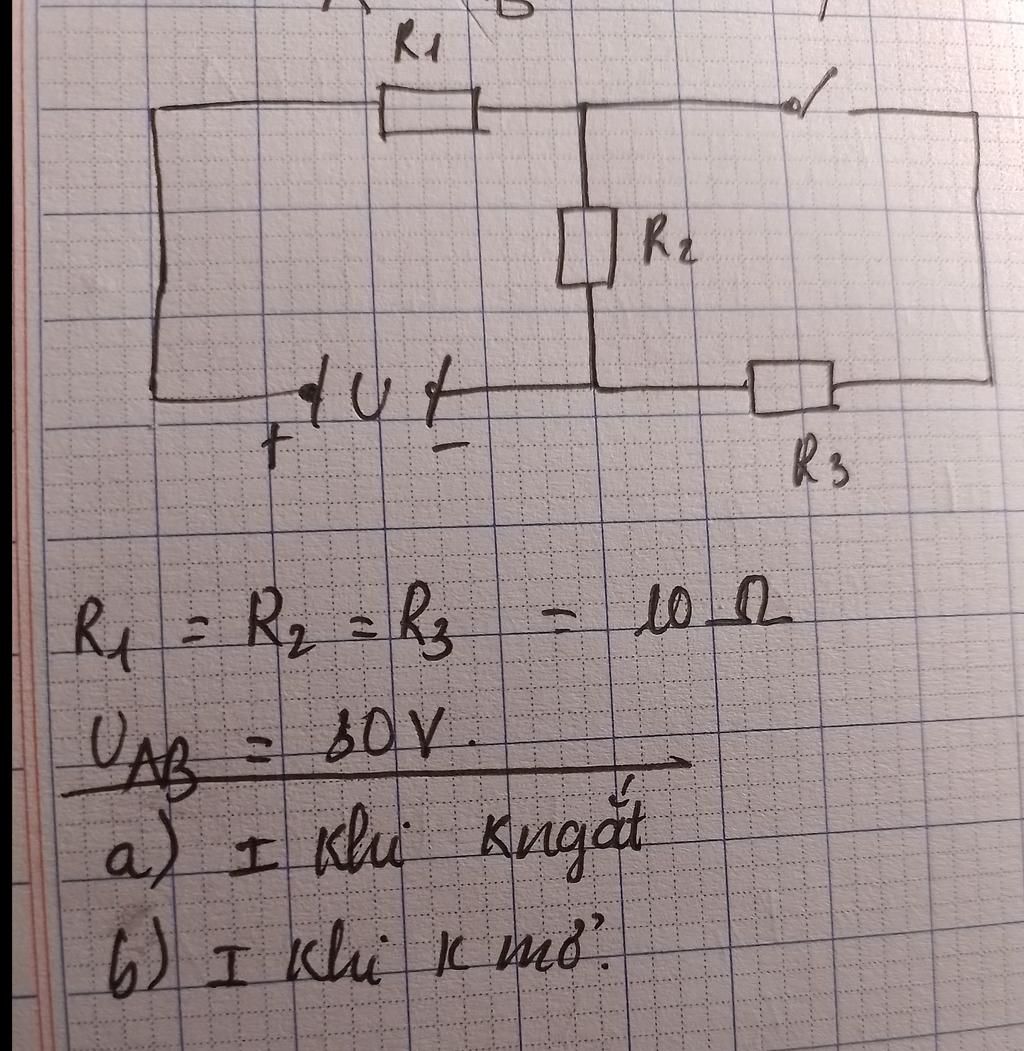 A B
R1
R2
+ U -
R3
R1 = R2 = R3 = 10 Ω
UAB = 30V.
a) I khi K ngắt
b) I khi K mở.